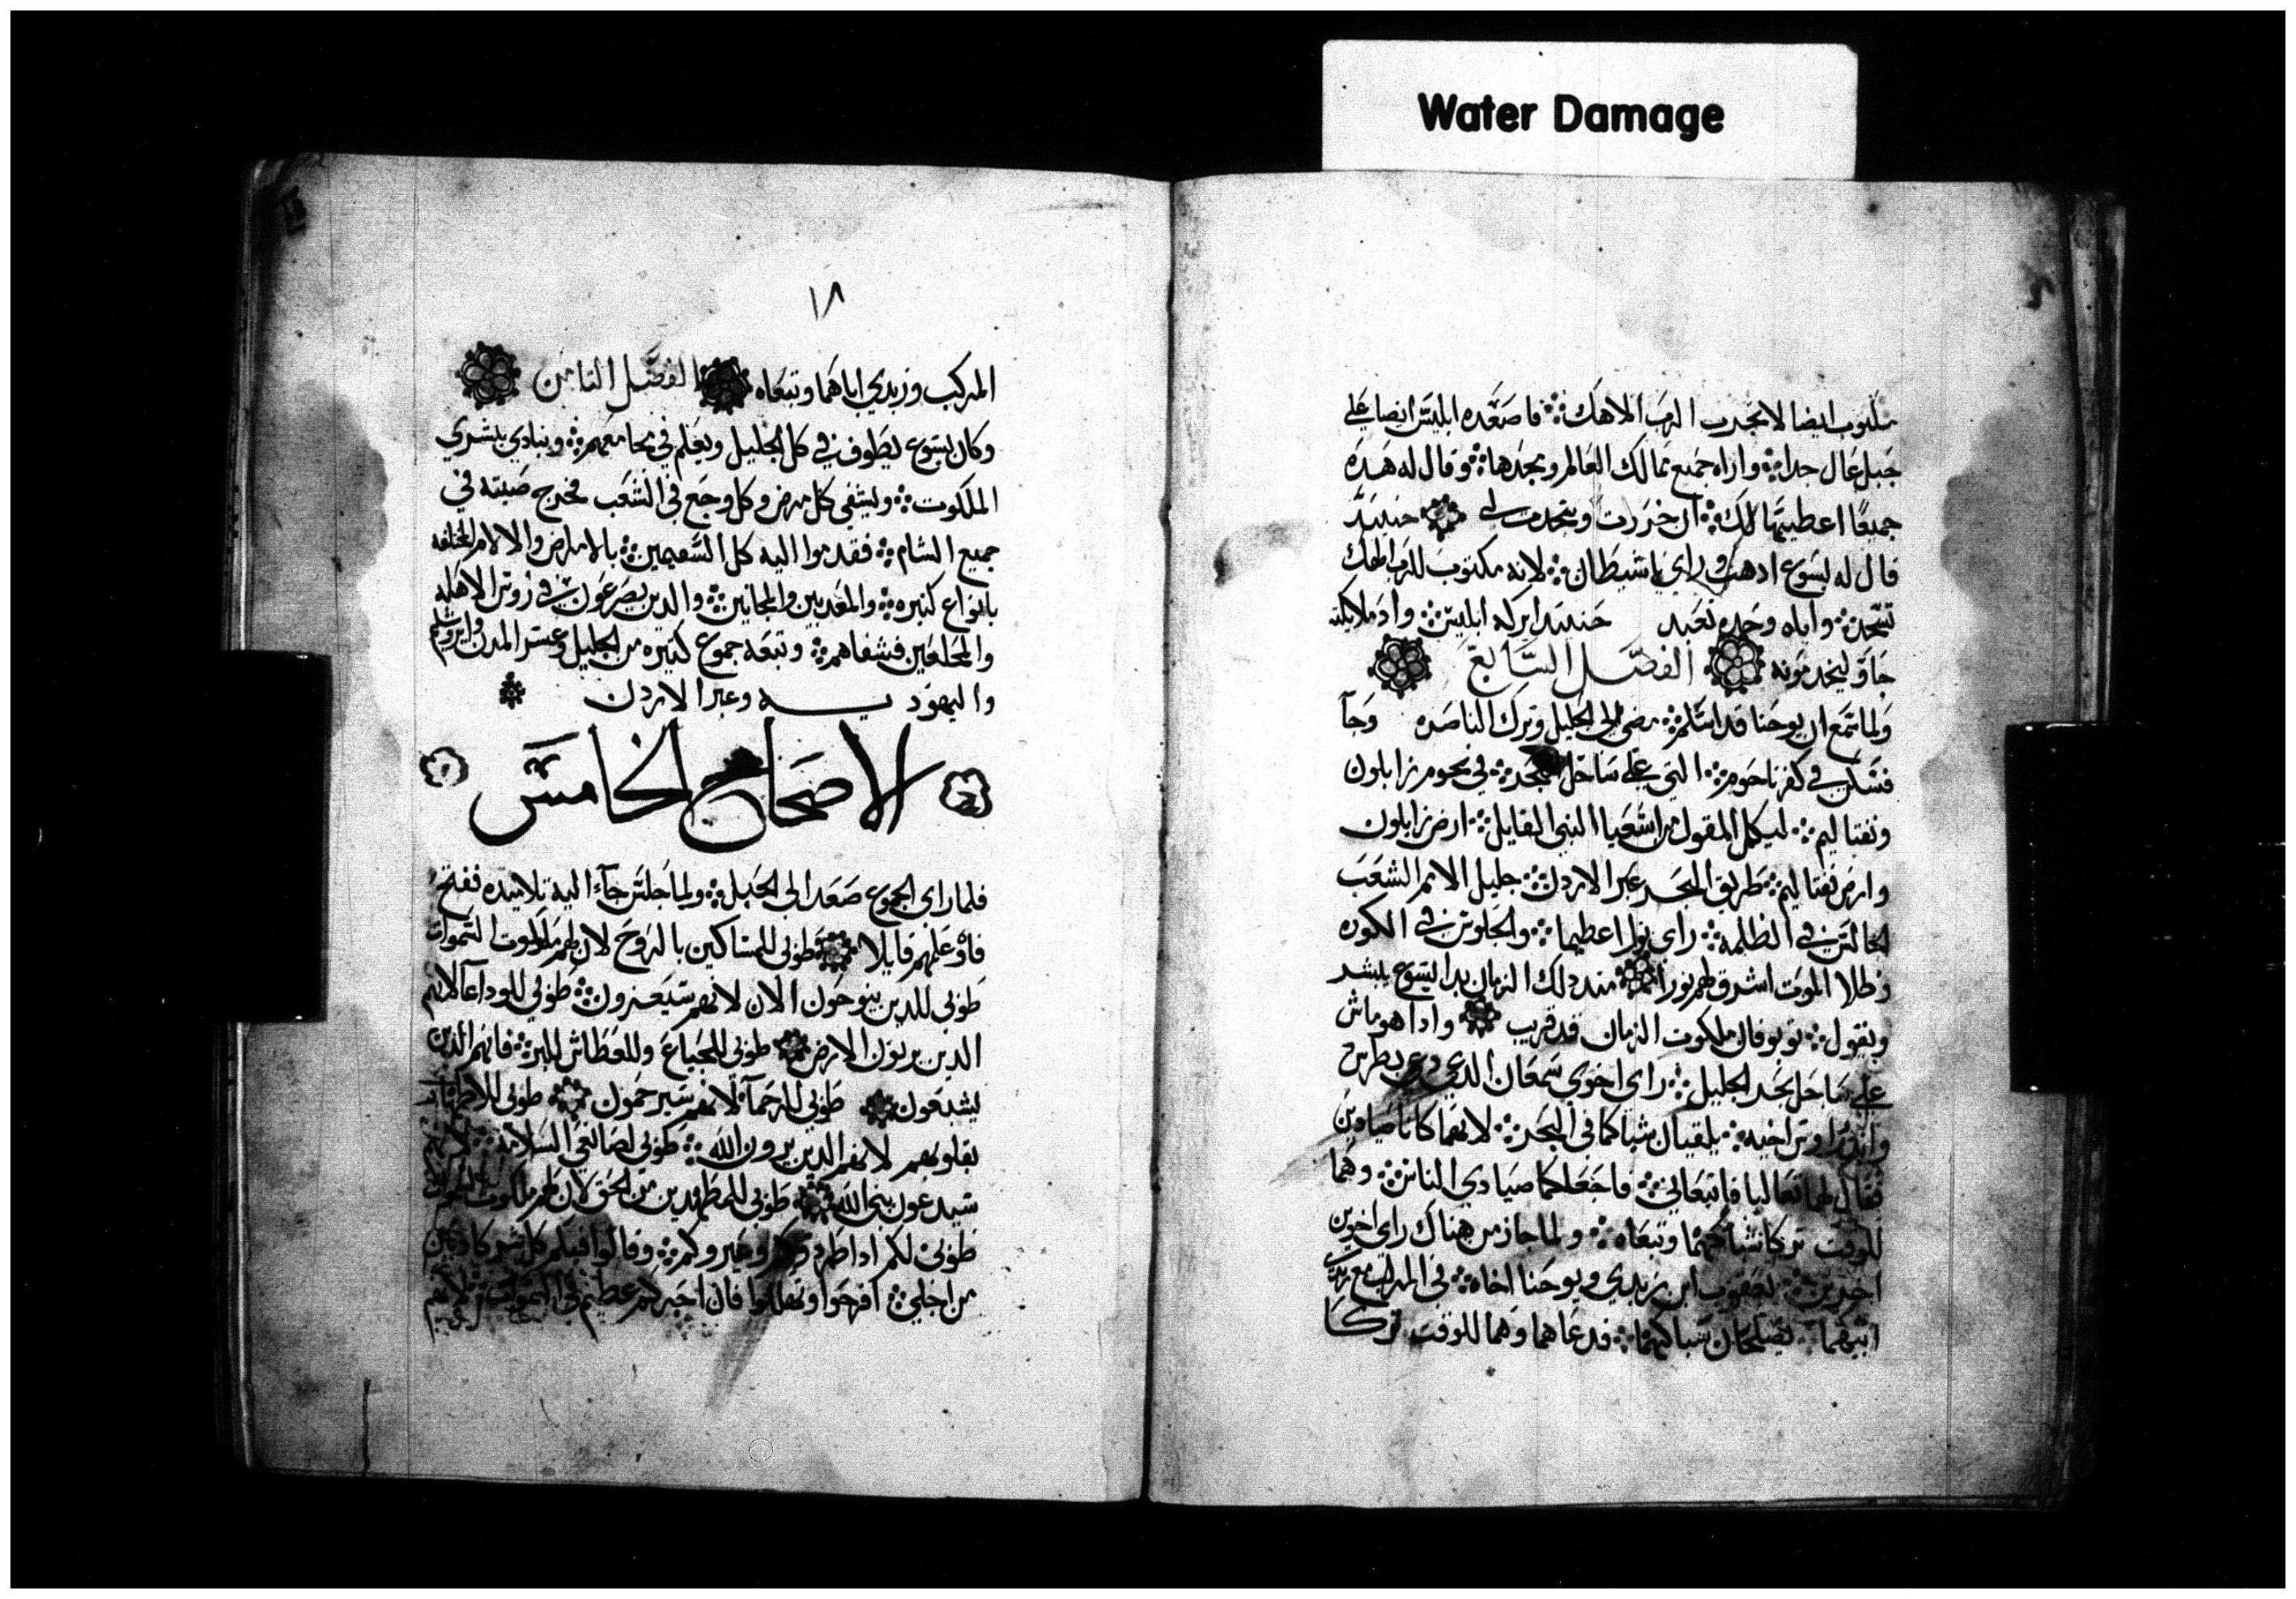 Water Damage
مكتوب ايضا لا تجرب الرب الاهك فاصعده ابليس ايضا على
جبل عال جدا واراه جميع ممالك العالم ومجدها وقال له هده
جميعا اعطيتها لك ان خررت وسجدت لي حينيد
قال له يسوع ادهب وراي يا شيطان لانه مكتوب للرب الهك
تسجد واياه وحده تعبد حينيد تركه ابليس وادملايكته
جاو ليخدمونه الفصل السابع
ولما سمع ان يوحنا قد اسلم مضى الى الجليل وترك الناصره وجآ
فسكن في كفرناحوم التي على ساحل البحر في نحوم زابلون
ونفتاليم ليكمل المقول من اشعيا النبي القايل ارض زابلون
وارض نفتاليم طريق البحر عبر الاردن جليل الامم الشعب
الجالس في الظلمه راى نورا عظيما والجلوس في الكوره
وظلال الموت اشرق لهم نورا مند دلك الزمان بدا يسوع يبشر
ويقول توبو فان ملكوت الزمان قد قريب وادا هو ماش
على ساحل بحر الجليل راى اخوي سمعان الدي دعي بطرس
واندراوس اخيه يلقيان شباكهما في البحر لانهما كانا صيادين
فقال لهما تعاليا فاتبعاني فاجعلكما صيادي الناس وهما
للوقت تركا شباكهما وتبعاه ولما جاز من هناك راى اخوين
اخرين يعقوب ابن زبدي ويوحنا اخاه في المركب مع زبدي
ابيهما يصلحان شباكهما فدعاهما وهما للوقت تركا
١٨
المركب وزبدي اباهما وتبعاه الفصل التامن
وكان يسوع يطوف في كل الجليل ويعلم في مجامعهم وينادي ببشري
الملكوت ويشفى كل مرض وكل وجع في الشعب فخرج صيته في
جميع الشام فقدموا اليه كل السقيمين بالامراض والالام المختلفه
بانواع كتيره والمعدبين والمجانين والدين يصرعون في روس الاهله
والمخلعين فشفاهم وتبعه جموع كتيره من الجليل وعشر المدن وايروشليم
واليهوديه وعبر الاردن
الاصحاح الخامس
فلما راى الجموع صعد الى الجبل ولما جلس جآء اليه تلاميده ففتح
فاه وعلمهم قايلا طوبى للمساكين بالروح لان لهم ملكوت السموات
طوبى للدين ينوحون الان لانهم سيعزون طوبى للودعآ لانهم
الدين يرتون الارض طوبى للجياع وللعطاش للبر فانهم الدين
يشبعون طوبى للرحمآ لانهم سيرحمون طوبى للاطهار
بقلوبهم لانهم الدين يرون الله طوبى لصانعي السلامه لانهم
سيدعون بني الله طوبى للمطهدين من الحق لان لهم ملكوت السموات
طوبى لكم ادا طردوكم وعيروكم وقالوا فيكم كل شر كادبين
من اجلي افرحوا وتهللوا فان اجركم عظيم في السموات لانهم